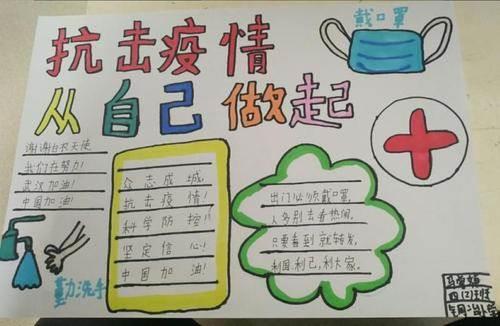 抗击疫情
戴口罩
从自己做起
谢谢白衣天使
我们在努力!
武汉加油!
中国加油!
众志成城,
抗击疫情!
科学防控!!
坚定信心!
中国加油!
出门必须戴口罩,
人多别去看热闹,
只要看到就转发,
利国,利己,利大家。
勤洗手
四(2)班